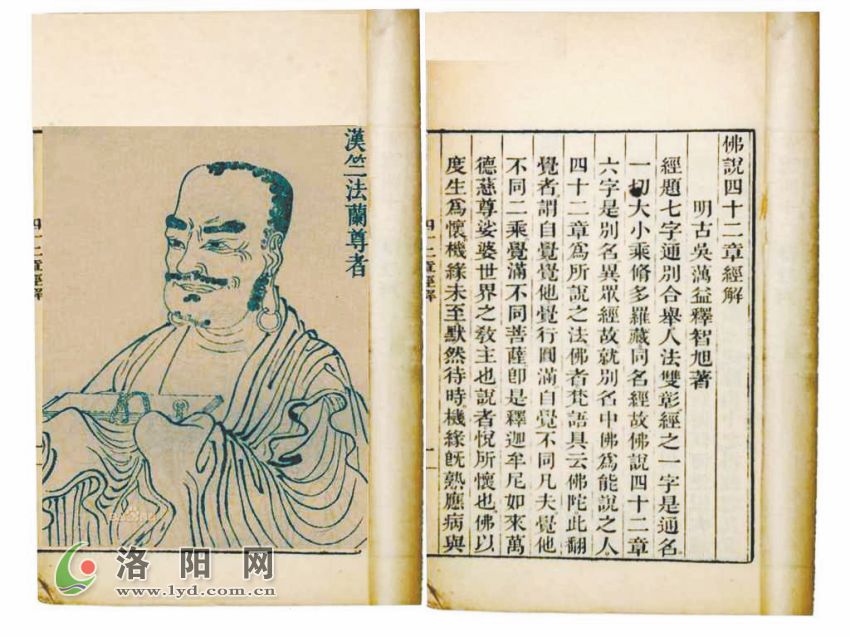 佛說四十二章經解
明古吳蕅益釋智旭著
經題七字通別合舉人法雙彰經之一字是通名
一切大小乘脩多羅藏同名經故佛說四十二章
六字是別名異眾經故就別名中佛為能說之人
四十二章為所說之法佛者梵語具云佛陀此翻
覺者謂自覺覺他覺行圓滿自覺不同凡夫覺他
不同二乘覺滿不同菩薩卽是釋迦牟尼如來萬
德慈尊娑婆世界之敎主也說者悅所懷也佛以
度生爲懷機緣未至默然待時機緣旣熟應病與
漢竺法蘭尊者
四十二章經解
洛阳网
www.lyd.com.cn